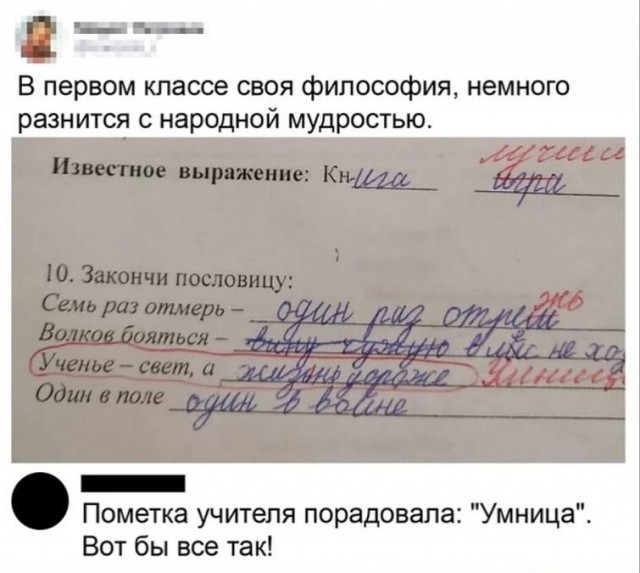 В первом классе своя философия, немного
разнится с народной мудростью.
лучший
Известное выражение: Книга игра
10. Закончи пословицу:
Семь раз отмерь – один раз отреш жь
Волков бояться – вину чужую в лес не хо
Ученье – свет, а жизнь дороже Умница
Один в поле один в войне
Пометка учителя порадовала: "Умница".
Вот бы все так!